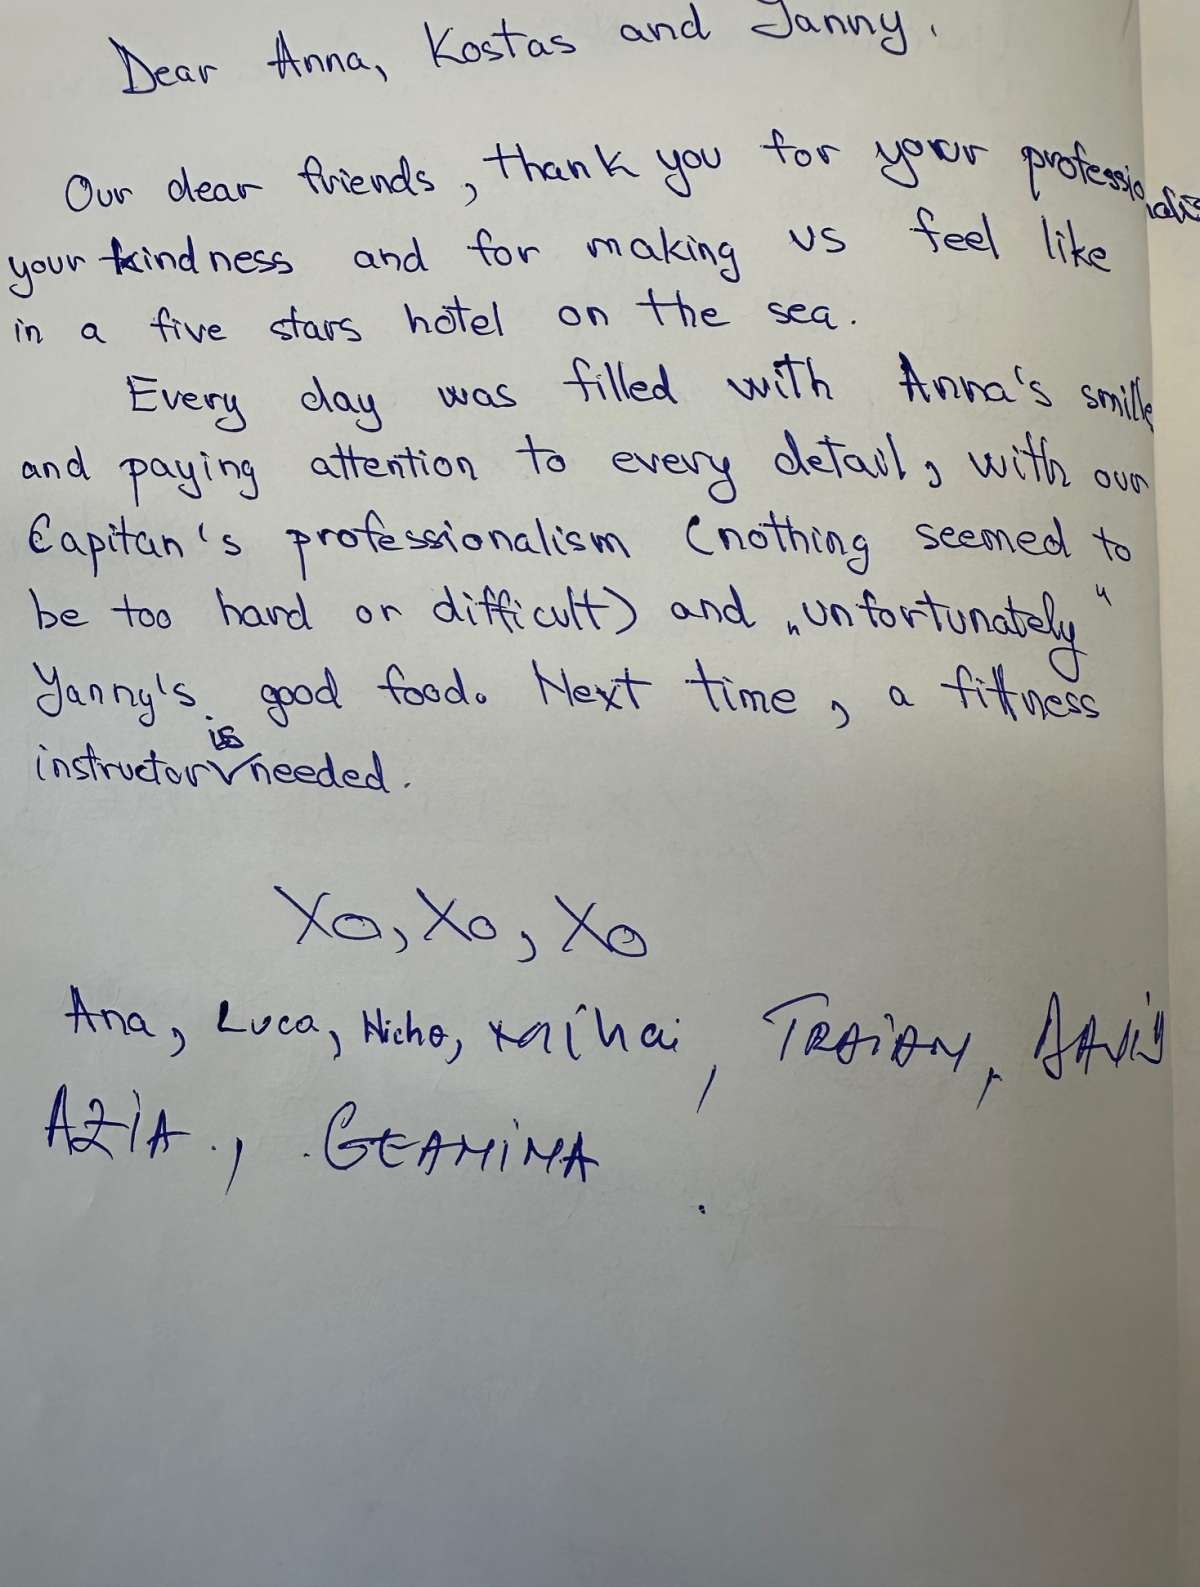 Dear Anna, Kostas and Yanny.
Our dear friends, thank you for your
your kindness and for making us feel like
in a five stars hotel on the sea.
Every day was filled with Anna's smille
and paying attention to every detail, with our
Capitan's professionalism (nothing seemed to
be too hard or difficult) and „unfortunately"
Yanny's good food. Next time, a fittness
instructor is needed.
Xo, Xo, Xo
Ana, Luca, Nicho, Mihai, TRAIAN,
AZIA., GEAMINA